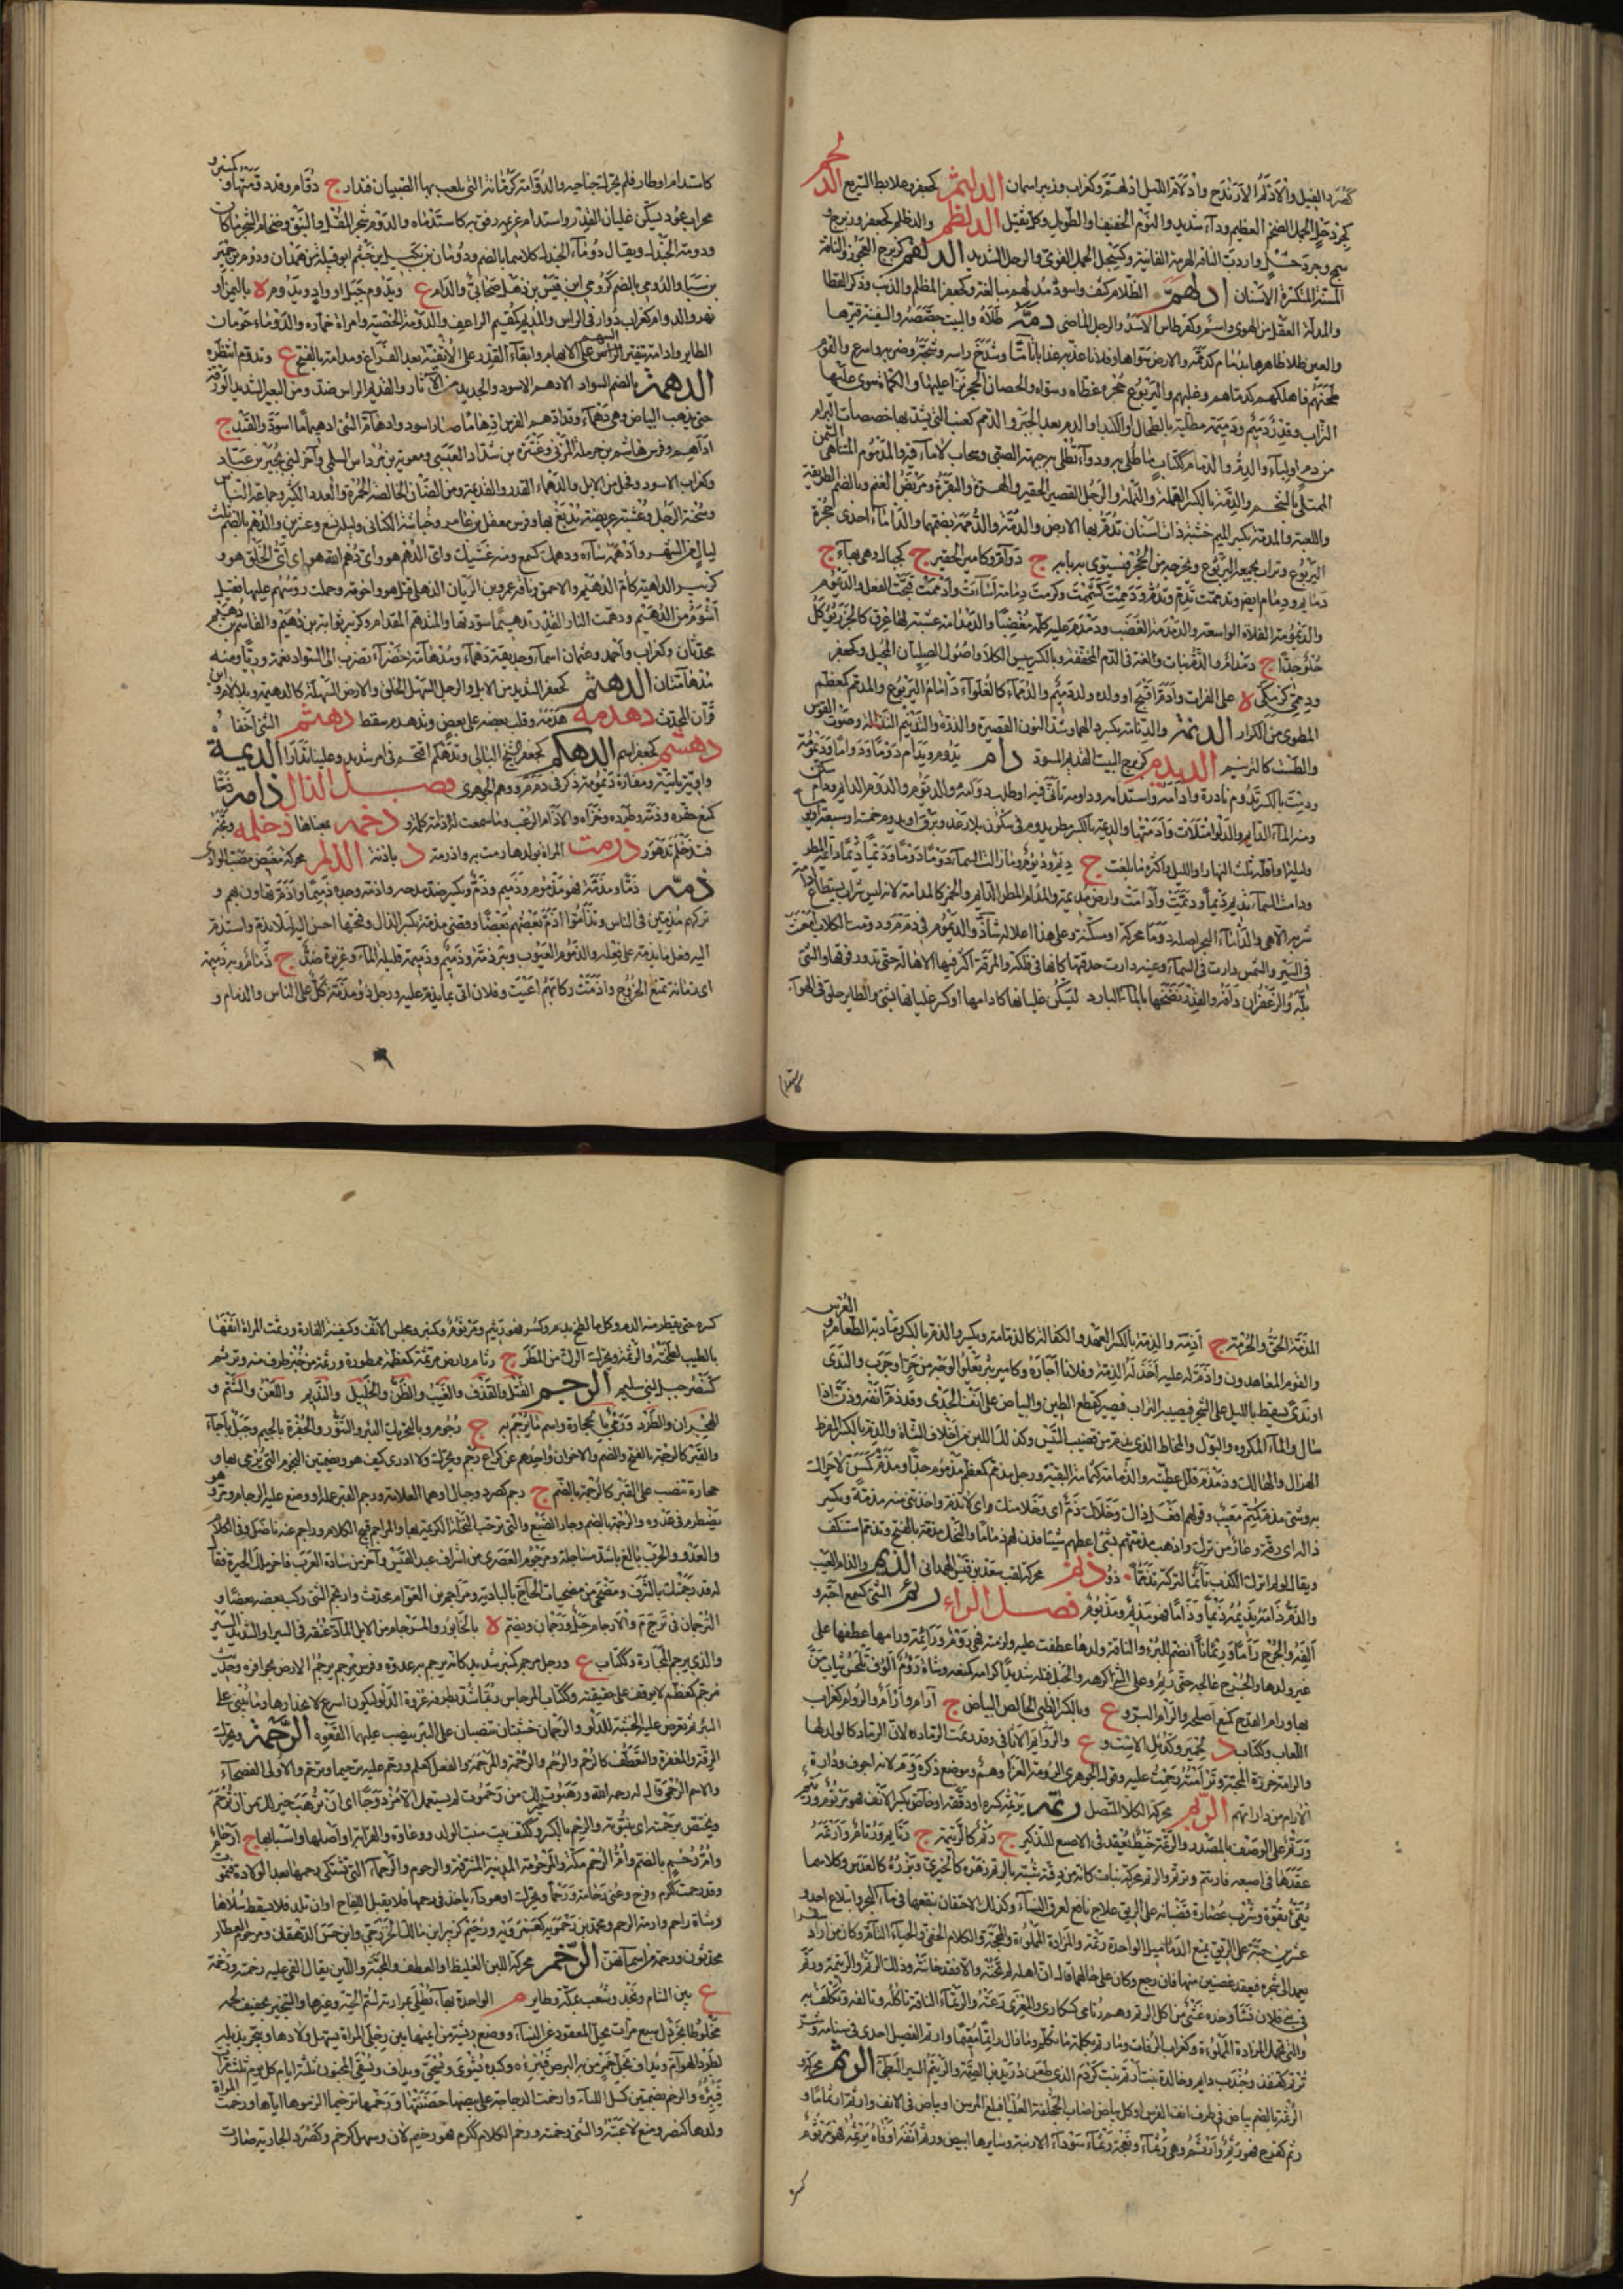 كصرد الفيل والادلم الارندج وادلام الليل ادلهم وكغراب وزبير اسمان الدلثم كجعفر وعلابط السريع الدلخم
كجردحل الجمل الضخم العظيم وداء شديد والنوم الخفيف او الطويل وكل ثقيل الدلظم والدلظم كجعفر وزبرج و
سبحل وجردحل واردب الناقة الهرمة الفانية وكسبحل الجمل القوي والرجل الشديد الدلقم كزبرج العجوز والناقة
المسنة المتكسرة الاسنان ادلهم الظلام كثف واسود مدلهم مبالغة وكجعفر المظلم والذئب وذكر القطا
والمدله العقل من الهوى واسم وكقرطاس الاسد والرجل الماضي دمه طلاه والبيت جصصه والسفينة قيرها
والعين طلا ظاهرها بدمام كدممه والارض سواها وفلانا عذبه عذابا تاما وشدخ راسه وشجه وضربه واسرع والقوم
طحنهم فاهلكهم كدمدمهم وعليهم واليربوع جحره غطاه وسواه والحصان الحجر نزا عليها والكماة سوى عليها
التراب وقدر دميم ودميمة مطلية بالطحال او الكبد او الدم بعد الجبر والدمم كعنب التي يشد بها خصاصات البرام
من دم او لباء والدم والدمام ككتاب ما طلي به ودواء تطلى به جبهة الصبي وسحاب لا ماء فيه والمدموم المتناهي السمن
الممتلئ بالشحم والدمة بالكسر القملة والنملة والرجل القصير الحقير والهرة والبعرة ومربض الغنم وبالضم الطريقة
واللعبة والمدمة بكسر الميم خشبة ذات اسنان تدم بها الارض والدمة والدممة بضمهما والداماء احدى جحرة
اليربوع وتراب يجمعه اليربوع ويخرجه من الجحر فيستوي به بابه ج دوام وكامير الحقير ج كجبال وهي بهاء ج
دمايم ودمام ايضا وقد دممت تدم وتدم ودممت كشممت وكرمت دمامة اسأت وادممت قبحت الفعل والديموم
والديمومة الفلاة الواسعة والدمدمة الغضب ودمدم عليه كلمه مغضبا والدمدامة عشبة لها عرق كالجزر يؤكل
حلو جدا ج دمدام والدم نبات ولغة في الدم المخففة وبالكسر يبيس الكلا واصول الصليان المحيل وكجعفر
ودممى كزمكى ة على الفرات وادم اقبح او ولد ولد دميم والدمماء كالغلواء دامام اليربوع والمدمم كمعظم
المطوي من الكرار الدنمة والدنامة بكسرهما وشد النون القصيرة والذرة والتدنيم النذالة وصوت القوس
والطست كالترنيم الديدم كزبرج البيت القديم المسود دام يدوم ويدام دوما ودواما وديمومة
ودمت بالكسر تدوم نادرة وادامه واستدامه وداومه تأنى فيه او طلب دوامه والدوم والديوم الدايم ودام سكن
ومنه الماء الدايم والدلو امتلات وادمتها والديمة بالكسر مطر يدوم في سكون بلا رعد وبرق او يدوم خمسة او ستة او سبعة ايام
وليلة واقله ثلث النهار او الليل واكثره ما بلغت ج ديم وديوم وما زالت السماء دوما دوما وديما ديما دايمة المطر
ودامت السماء تديم ديما وديمت وادامت وارض مديمة والمدام المطر الدايم والخمر كالمدامة لانه ليس شراب يستطاع ادامة
شربه الا هي والداماء البحر اصله دوماء محركة او مسكنة وعلى هذا اعلاله شاذ والديموم في دمم ودومت الكلاب امعنت
في السير والشمس دارت في السماء وعينه دارت حدقتها كانها في فلكة والمرقة اكثر فيها الاهالة حتى تدور فوقها والشيء
بله والزعفران دافه والقدر نضحها بالماء البارد ليسكن غليانها كادامها او كسر غليانها بشيء والطاير حلق في الهواء
كاستدام
كاستدام او طار فلم يحرك جناحيه والدوامة كرمانة التي يلعب بها الصبيان فتدار ج دوام وقد دومتها وكمنبر و
محراب عود يسكن به غليان القدر واستدام غريمه رفق به كاستدماه والدوم شجر المقل والنبق وضخام الشجر ما كان
ودومة الجندل ويقال دوماء الجندل كلاهما بالضم ودومان بن بكيل بن جشم ابو قبيلة من همدان ودوم بن حمير
بن سبا والدومي بالضم كرومي ابن قيس بن ذهل صحابي والدام ع ويدوم جبل او واد ويدوم ة باليمن او
نهر والدوام كغراب دوار في الراس والمديم كمقيم الراعف والدومة الخصية وامراة خمارة والدوماء حومان
الطاير وادامة تنقير السهم على الابهام وابقاء القدر على الاثفية بعد الفراغ ومدامة بالفتح ع وتدوم انتظر
الدهمة بالضم السواد الادهم الاسود والجديد من الآثار والقديم الدارس ضد ومن البعير الشديد الورقة
حتى يذهب البياض وهي دهماء وقد ادهم الفرس ادهماما صار اسود وادهام الشيء ادهيماما اسود والقيد ج
اداهم وفرس هاشم بن حرملة المري وعنترة بن شداد العبسي ومعوية بن مرداس السلمي وآخر لبني بجير بن عباد
وكغراب الاسود وفحل من الابل والدهماء القدر والقديمة ومن الضان الخالصة الحمرة والعدد الكثير وجماعة الناس
وسحنة الرجل وعشبة عريضة يدبغ بها وفرس معقل بن عامر وحباشة الكناني وليلة تسع وعشرين والدهم بالضم ثلث
ليال من الشهر وادهمه ساءه ودهمك كسمع ومنع غشيك واي الدهم هو واي دهم الله هو اي الخلق هو و
كزبير الداهية كام الدهيم والاحمق وناقة عمرو بن الزبان الذهلي قتل هو واخوته وحملت رؤسهم عليها فقيل
اشوم من الدهيم ودهمت النار القدر تدهيما سودتها والمتدهم المقدام وكزبير ثوابة بن دهيم والقاسم بن دهيم
محدثان وكغراب واحمد وعثمان اسماء وحديقة دهماء ومدهامة خضراء تضرب الى السواد نعمة وريا ومنه
مدهامتان الدهثم كجعفر الشديد من الابل والرجل السهل الخلق والارض السهلة كالدهثمة وبلا لام بن
قران المحدث دهدمه هدمه وقلب بعضه على بعض وتدهدم سقط دهثم الشيء اخفاه
دهشم كجعفر اسم الدهكم كجعفر الشيخ البالي وتدهكم اقتحم في امر شديد وعلينا تدرا الديمة
واوية يائية ومفازة ديمومة ذكر في دمم ووهم الجوهري فصل الذال ذامه ذاما
كمنع حقره وذمه وطرده وخزاه والاذام الرعب وما سمعت له ذامة كلمة ذحمه بمعناها ذحلمه ذبحه
فتذحلم تدهور ذرمت المراة بولدها رمت به واذرمة د باذنة الذلم محركة مغيض مصب الوادي
ذمه ذما ومذمة فهو مذموم وذميم وذم ويكسر ضد مدحه واذمه وجده ذميما واذم بهم تهاون بهم و
تركهم مذمومين في الناس وتذامموا ذم بعضهم بعضا وقضى مذمته بكسر الذال وفتحها احسن اليه لئلا يذم واستذم
اليه فعل ما يذمه على فعله والذموم العيوب وبئر ذمة وذميم وذميمة قليلة الماء وغزيرة ضد ج ذمام وبه ذميمة
اي زمانة تمنع الخروج واذمت ركابهم اعيت وفلان اتى بما يذم عليه ورجل ذو مذمة كل على الناس والذمام و
المذمة الحق والحرمة ج اذمة والذمة بالكسر العهد والكفالة كالذمامة ويكسر والذم بالكسر ومأدبة الطعام و العرس
والقوم المعاهدون واذم له عليه اخذ له الذمة وفلانا اجاره وكامير بثر يعلو الوجه من حر او جرب والندى
او ندى يسقط بالليل على الشجر فيصيبه التراب فيصير كقطع الطين والبياض على انف الجدي وقد ذم انفه وذن اذا
سال والماء المكروه والبول والمخاط الذي يذم من قضيب التيس وكذلك اللبن من اخلاف الشاة والذم بالكسر المفرط
الهزال والهالك وذمذم قلل عطيته والذمامة كثمامة البقية ورجل مذمم كمعظم مذموم جدا ومذم كمسن لا حراك
به وشيء مذم كمتم معيب وقولهم افعل كذا وكذا وخلاك ذم اي وخلا منك ذم اي لا تذم واخذتني منه مذمة ويكسر
ذاله اي رقة وعار من ترك واذهب مذمتهم بشيء اعطهم شيئا فان لهم ذماما والبخل مذمة بالفتح وتذمم استنكف
ويقال لو لم اترك الكذب تأثما لتركته تذمما ذو ذم محركة لقب سعد بن قيس الهمداني الذيم والذام العيب
والذم ذامه يذيمه ذيما وذاما فهو مذيم ومذيوم فصل الراء رئم الشيء كسمع احبه و
الفه والجرح رأما ورئمانا انضم للبرء والناقة ولدها عطفت عليه ولزمته فهي رؤم ورائمة ورائم وارأمها عطفها على
غير ولدها والجرح عالجه حتى رئم وعلى الشيء اكرهه والحبل فتله شديدا كرأمه كمنعه وشاة رؤم الوف تلحس ثياب من
بها ورام القدح كمنع اصلحه والرام البو وع وبالكسر الظبي الخالص البياض ج آرام وارام والروام كغراب
اللعاب وككتاب د لحمير وكدئل الاست و ع والروايم الاثافي وقد رئمت الرماد لان الرماد كالولد لها
والرامة خرزة المحبة ورامت رحمت عليه وقول الجوهري الرومة الغراء وهم وموضع ذكره روم لانه اجوف ودارة
الارام من داراتهم الرتم محركة الكلا المتصل رتمه يرتمه كسره او دقه او خاص بكسر الانف فهو مرتوم ورتيم
ورتم على الوصف بالمصدر والرتمة خيط يعقد في الاصبع للتذكير ج رتم كالرتيمة ج رتايم ورتام وارتمه
عقدها في اصبعه فارتتم وترتم والرتم محركة نبات كانه من دقته شبه بالرتم زهره كالخيري وبزره كالعدس وكلاهما
يقيئ بقوة وشرب عصارة قضبانه على الريق علاج نافع لعرق النساء وكذلك الاحتقان بنقيعها في ماء البحر وابتلاع احدى و
عشرين حبة على الريق يمنع الدماميل الواحدة رتمة والمزادة المملوءة والمحجة والكلام الخفي والحياء التام وكان من اراد سفرا
يعمد الى شجرة فيعقد غصنين منها فان رجع وكان على حالهما قال ان اهله لم تخنه والا فقد خانته وذلك الرتم والرتيمة ورتم
في بني فلان نشأ وخده غشي من اكل الرتم وهم رتامى كسكارى والمعزى رعته والرتماء الناقة تاكله وتالفه وتكلف به
والتي تحمل المزادة المملوءة وكغراب الرفات وما رتم بكلمة ما تكلم وما زال راتما مقيما وارتم الفصيل اجدى في سنامه وشر
ترتم كقنفذ وجندب دايم وخالدة بنت ارتم بنت كردم الذي طعن دريد بن الصمة والرتيم السير البطيء الرثم محركة و
الرثمة بالضم بياض في طرف انف الفرس او كل بياض اصاب الجحفلة العليا فبلغ المرسن او بياض في الانف وارثم ارثماما و
رثم كفرح فهو رثم وارثم وهي رثماء ونعجة رثماء سوداء الارنبة وسايرها ابيض ورثم انفه او فاه يرثمه فهو مرثوم
كسره
كسره حتى يقطر منه الدم وكل ما لطخ بدم وكسر فهو رثيم ومرثوم وكمنبر ومجلس الانف وكسفينة الفارة ورثمت المراة انفها
بالطيب لطخته والرثمة ويحرك الرك من المطر ج رثام وارض مرثمة كمعظمة ممطورة ورثمة من خبر طرف منه ويرثم
كينصر جبل لبني سليم الرجم القتل والقذف والغيب والظن والخليل والنديم واللعن والشتم و
الهجران والطرد ورمي بالحجارة واسم ما يرجم به ج رجوم وبالتحريك البئر والتنور والجفرة بالجيم وجبل باجا
والقبر كالرجمة بالفتح والضم والاخوان واحدهم عن كراع رجم ويحرك ولا ادري كيف هو وبضمتين النجوم التي يرمى بها و
حجارة تنصب على القبر كالرجمة بالضم ج رجم كصرد وجبال او هما العلامة ورجم القبر علمه او وضع عليه الرجام ومر وهو
يضطرم في عدوه والرجمة بالضم وجار الضبع والتي ترجب النخلة الكريمة بها والمراجم قبيح الكلام وراجم عنه ناضل وفي الكلام
والعدو والحرب بالغ باشد مساجلة ومرجوم العصري من اشراف عبد القيس وآخر من سادة العرب فاخر ملك الحيرة فقال
له قد رجمتك بالشرف ومقضى من مصحيات الحاج بالبادية ومراجم بن العوام محدث وارتجم الشيء ركب بعضه بعضا و
الترجمان في ترجم والارجام جبل ورجمان ويضم ة بالخابور والمسترجام من الابل الماد عنقه في السير او الشديد السير
والذي يرجم الحجارة وككتاب ع ورجل مرجم كمنبر شديد كانه يرجم به عدوه وفرس مرجم يرجم الارض بحوافره وحديث
مرجم كمعظم لا يوقف على حقيقته وككتاب المرجاس وربما شد بطرف عرقوة الدلو ليكون اسرع لانحدارها وما يبنى على
البئر ثم تعرض عليه الخشبة للدلو والرجامان خشبتان تنصبان على البئر ينصب عليهما القعو الرحمة ويحرك
الرقة والمغفرة والتعطف كالرحم والرحم والمرحمة والفعل كعلم ورحم عليه ترحيما وترحم والاولى الفصحى
والاسم الرحمى قال له رحمه الله ورهبوت خير لك من رحموت لم يستعمل الا مزدوجا اي ان ترهب خير لك من ان ترحم
ويختص برحمته اي بنبوته والرحم بالكسر وككتف بيت منبت الولد ووعاؤه والقرابة او اصلها واسبابها ج ارحام
وام رحم بالضم وام الرحم مكة والمرحومة المدينة المشرفة والرحوم والرحماء التي تشتكي رحمها بعد الولادة فتموت
وقد رحمت ككرم وفرح وعني رحامة ورحما ويحرك او هو داء ياخذ في رحمها فلا يقبل اللقاح او ان تلد فلا يسقط سلاها
وشاة راحم وارمة الرحم ومحمد بن رحمويه كعمرويه ورحيم كزبير ابن مالك الخزرجي وابن حسن الدهقان ومرحوم العطار
محدثون ورحمة من اسمائهن الرخم محركة اللبن الغليظ او العطف والمحبة واللين يقال القى عليه رحمته ورخمته
ع بين الشام ونجد وشعب بمكة وطاير م الواحدة بهاء تطلى بمرارته لسم الحية وغيرها والتبخير بجفيف لحمه
مخلوطا بخردل سبع مرات يحل المعقود عن النساء ووضع ريشة من ايمنها بين رجلي المراة يسهل ولادها ويتخر بذبله
لطرد الهوام ويداف بخل خمر من به البرص فيغيره وكبده تشوى وتسحق وتداف وتسقى المجنون ثلثة ايام كل يوم ثلث مرات
فيبرئه والرخم بضمتين كسل اللبأ وارخمت الدجاجة على بيضها حضنتها ورخمها ترخيما الزموها اياها ورخمت المراة
ولدها كنصر ومنع لاعبته والشيء رحمته ورخم الكلام ككرم فهو رخيم لان وسهل كرخم وكصرد الجارية صارت